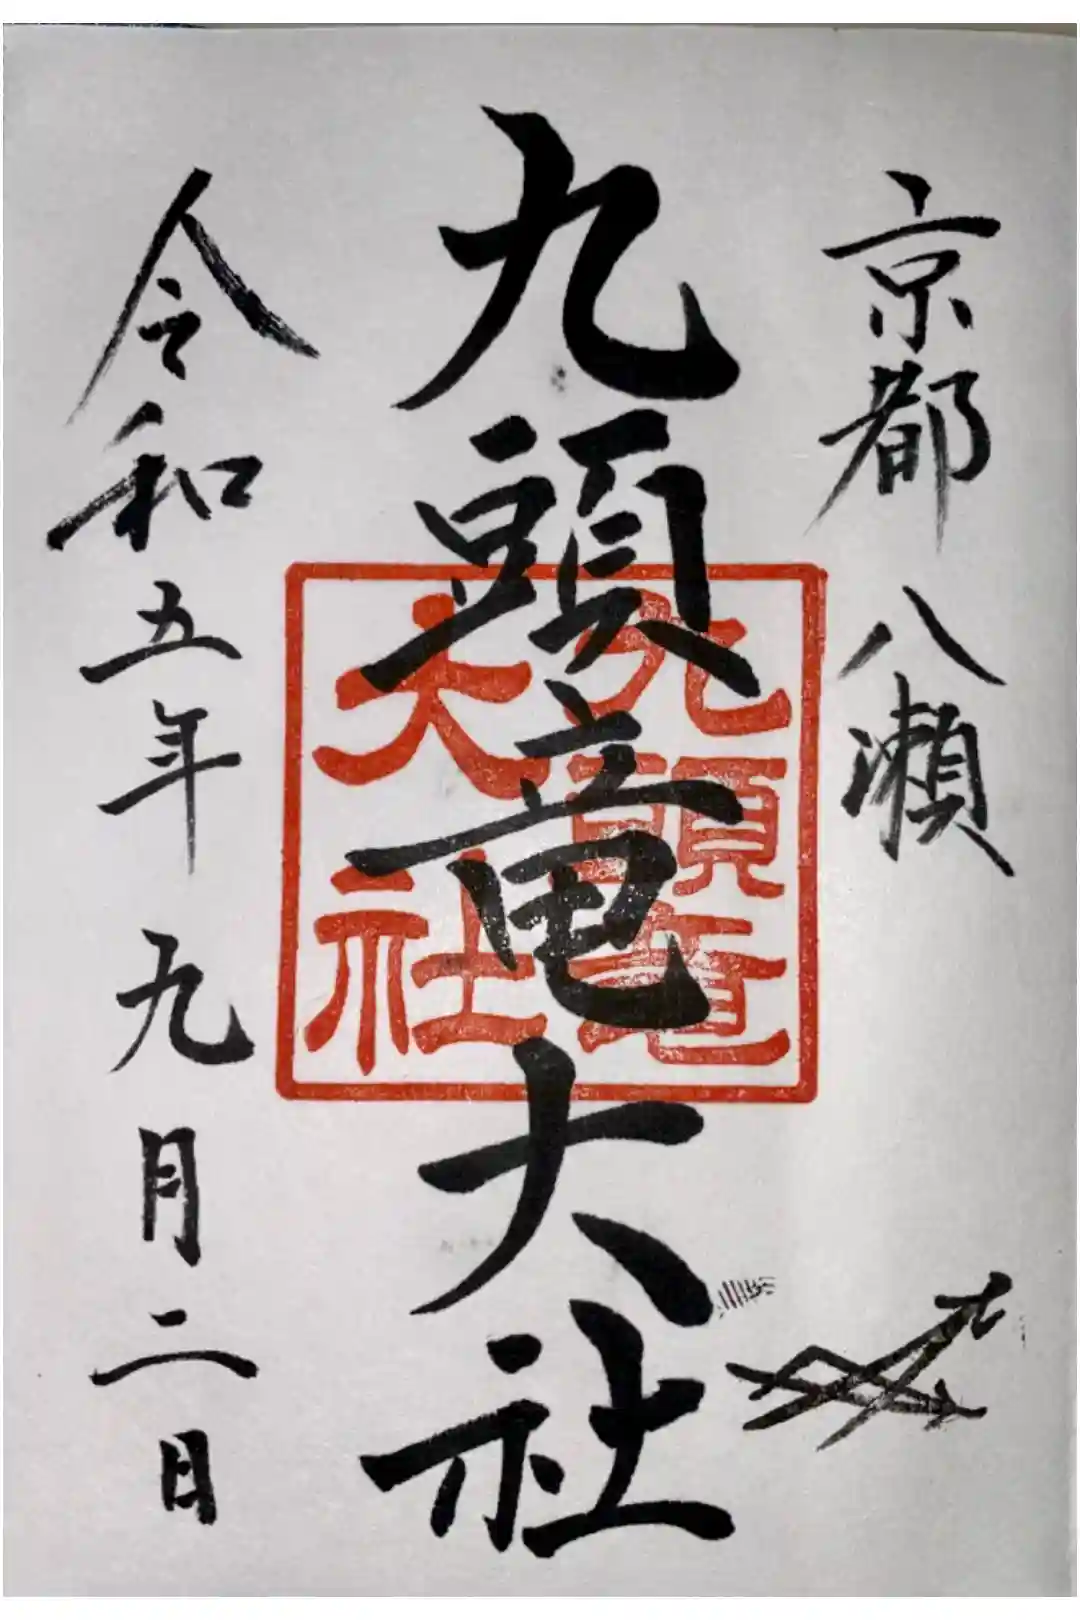 京都 八瀬
九頭竜大社
九頭竜
大社
令和五年 九月二日